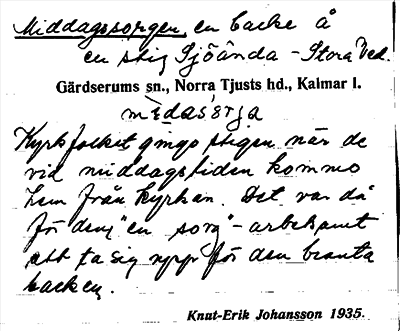 Middagssorgen, en backe å
en stig Sjöända - Stora Ved.
Gärdserums sn., Norra Tjusts hd., Kalmar l.
Kyrkfolket gingo stigen när de
vid middagstiden kommo
hem från kyrkan. Det var då
för dem "en sorg" - arbetsamt
att ta sig upp för den branta
backen.
Knut-Erik Johansson 1935.